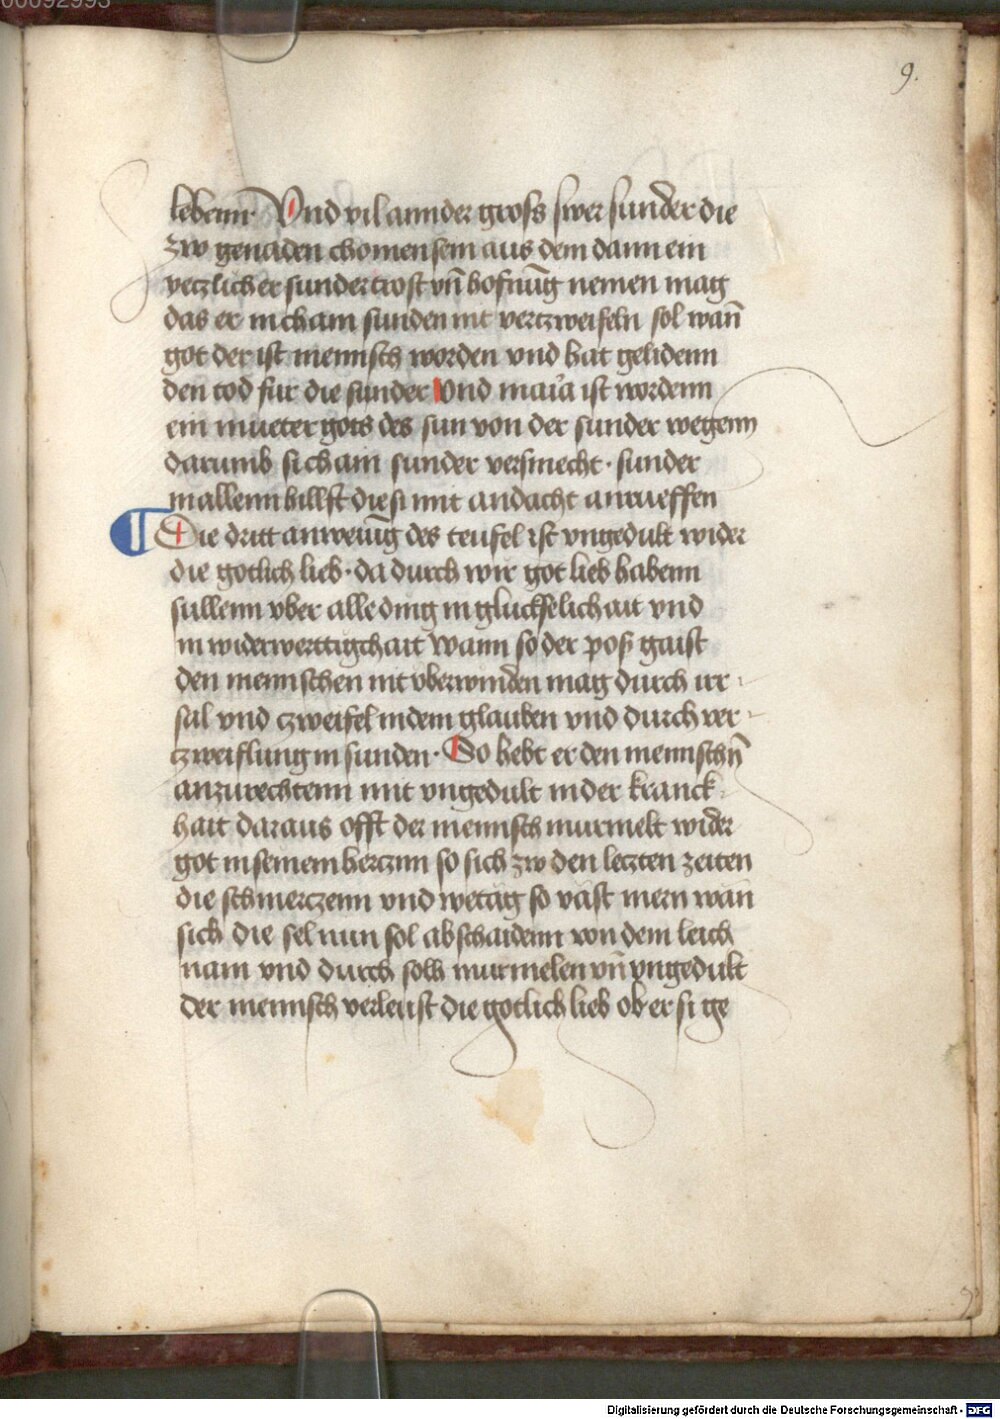 00092993
9.
lebenn Und vil annder gross swer sunder die
zw genaden chomen sein aus dem dann ein
yeczlicher sunder trost vn̄ hofnūg nemen mag
das er in cham sunden nit vertzweifeln sol wan̄
got der ist mennsch worden vnd hat gelidenn
den tod für die sunder Und maria ist wordenn
ein mueter gots des sun von der sunder wegenn
darumb si chain sunder versmecht · sunder
in allenn hillft die si mit andacht anrueffen
Die dritt anweiūg des teufel ist vngedult wider
die gotlich lieb · da durch wir got lieb habenn
sullenn vber alle ding in gluckselichait vnd
in widerwerttigchait Wann so der pos gaist
den mennschen nit vberwinden mag durch irr
sal vnd czweifel in dem glauben vnd durch ver
zweiflung in sunden · So hebt er den mennschn̄
anzurechtenn mit vngedult in der kranck
hait daraus offt der mennsch murmelt wider
got in seinem hercznn so sich zw den leczten zeiten
die schmerczenn vnd wetag so vast mern wan̄
sich die sel nun sol abschaidenn von dem leich
nam vnd durch solh murmelen vn̄ vngedult
der mennsch verleust die gotlich lieb ob er si ge
Digitalisierung gefördert durch die Deutsche Forschungsgemeinschaft - DFG